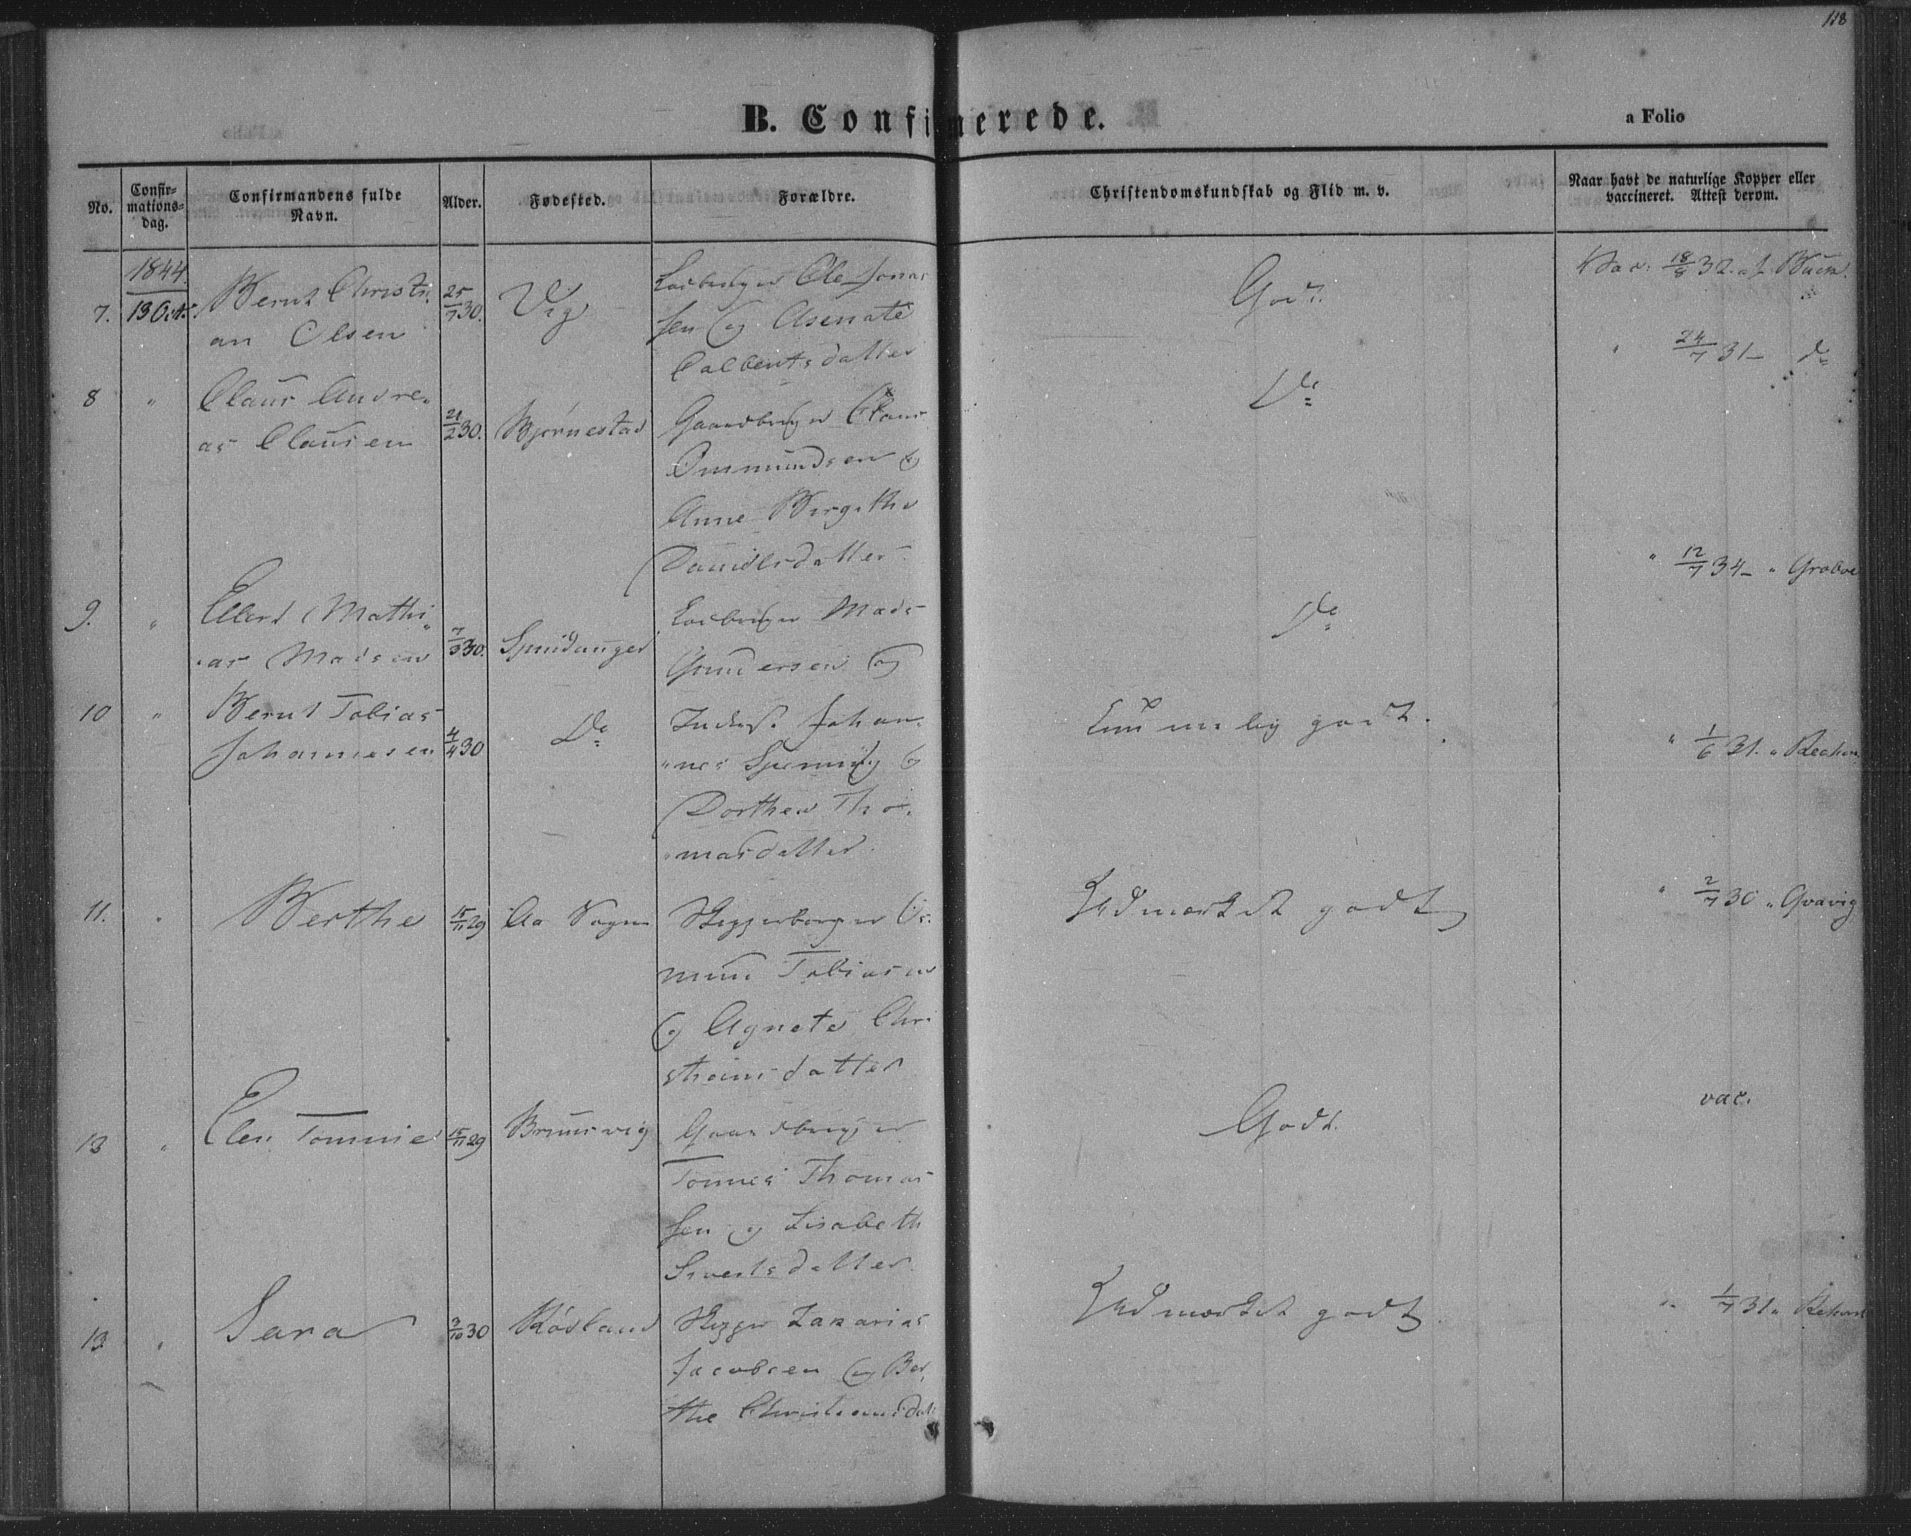 118
B. Confirmerede.
a Folio
No.
Confir-
mations-
dag.
Confirmandens fulde
Navn.
Alder.
Fødested.
Forældre.
Christendomskundskab og Flid m. v.
Naar havt de naturlige Kopper eller
vaccineret. Attest derom.
1844
7. 13 Oct. Bernt Christi-
an Olsen
25/7 30.
Vig
Ole Jonas
sen og Asenate
datter
Godt.
Vac. 18/8 32. af
8 " Claus Andre-
as Clausen
21/2 30.
Bjørnestad
Gaardbruger Claus
Ommundsen og
Anne Birgithe
Danielsdatter
Do
" 24/7 31 - do
9. " Mathi-
as Madsen
7/3 30.
Mads
Gundersen og
Do
" 12/7 34 - "
10 " Bernt Tobias
Johannesen
4/4 30
Do
Inderst Johan-
nes og
Dorthea Tho-
masdatter.
Temmelig godt.
" 1/6 31. "
11. " Berthe
15/11 29
Aa Sogn
Os-
mun Tobiasen
og Agnete Chri
stiansdatter
Udmærket godt
" 2/7 30 " Qvavig
13 " Elen Tomine
15/11 29
Brunsvig
Gaardbruger
Tønnes Thomas
sen og Lisabeth
Sivertsdatter.
Godt.
vac.
13 " Sara
3/10 30
Røsland
Zakarias
Jacobsen og Ber
the Christiansdat
Udmærket godt.
" 1/7 31 "